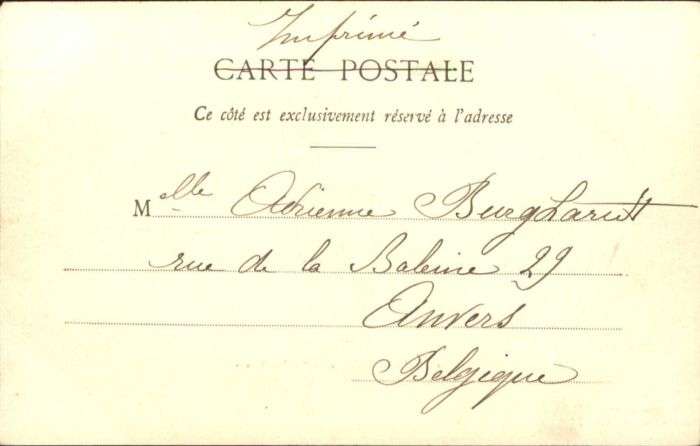 Imprimé
CARTE POSTALE
Ce côté est exclusivement réservé à l'adresse
Melle Adrienne
rue de la Baleine 29
Anvers
Belgique